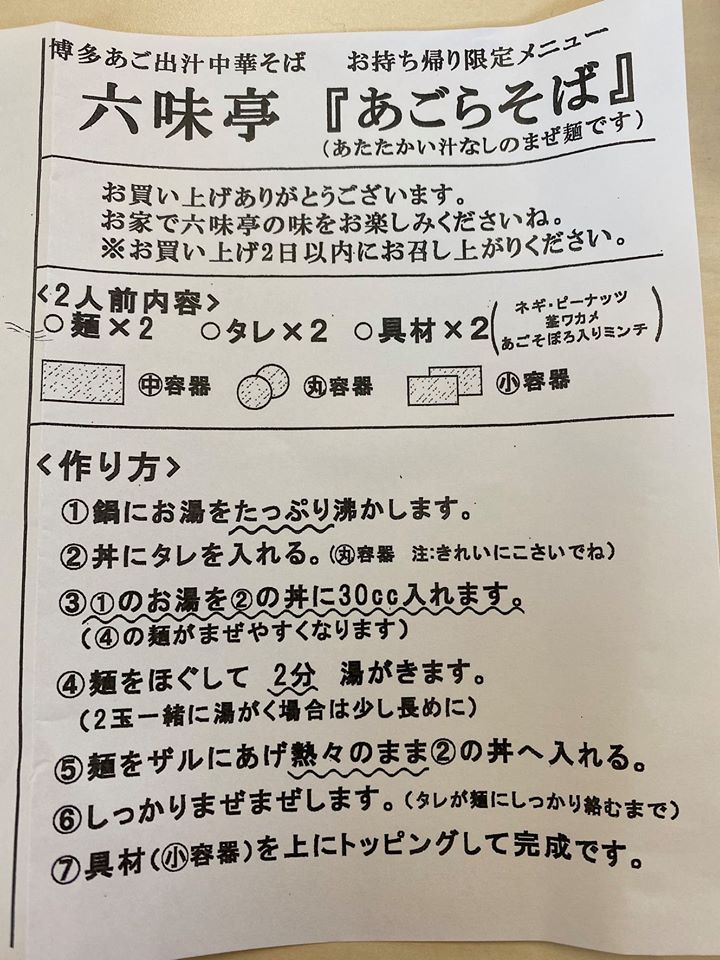 博多あご出汁中華そば　お持ち帰り限定メニュー
六味亭『あごらそば』
（あたたかい汁なしのまぜ麺です）
お買い上げありがとうございます。
お家で六味亭の味をお楽しみくださいね。
※お買い上げ2日以内にお召し上がりください。
<2人前内容>
○麺×2　○タレ×2　○具材×2（ネギ・ピーナッツ
茎ワカメ
あごそぼろ入りミンチ）
㊥容器　丸容器　小容器
<作り方>
①鍋にお湯をたっぷり沸かします。
②丼にタレを入れる。（丸容器　注:きれいにこさいでね）
③①のお湯を②の丼に30cc入れます。
（④の麺がまぜやすくなります）
④麺をほぐして 2分 湯がきます。
（2玉一緒に湯がく場合は少し長めに）
⑤麺をザルにあげ熱々のまま②の丼へ入れる。
⑥しっかりまぜまぜします。（タレが麺にしっかり絡むまで）
⑦具材（小容器）を上にトッピングして完成です。